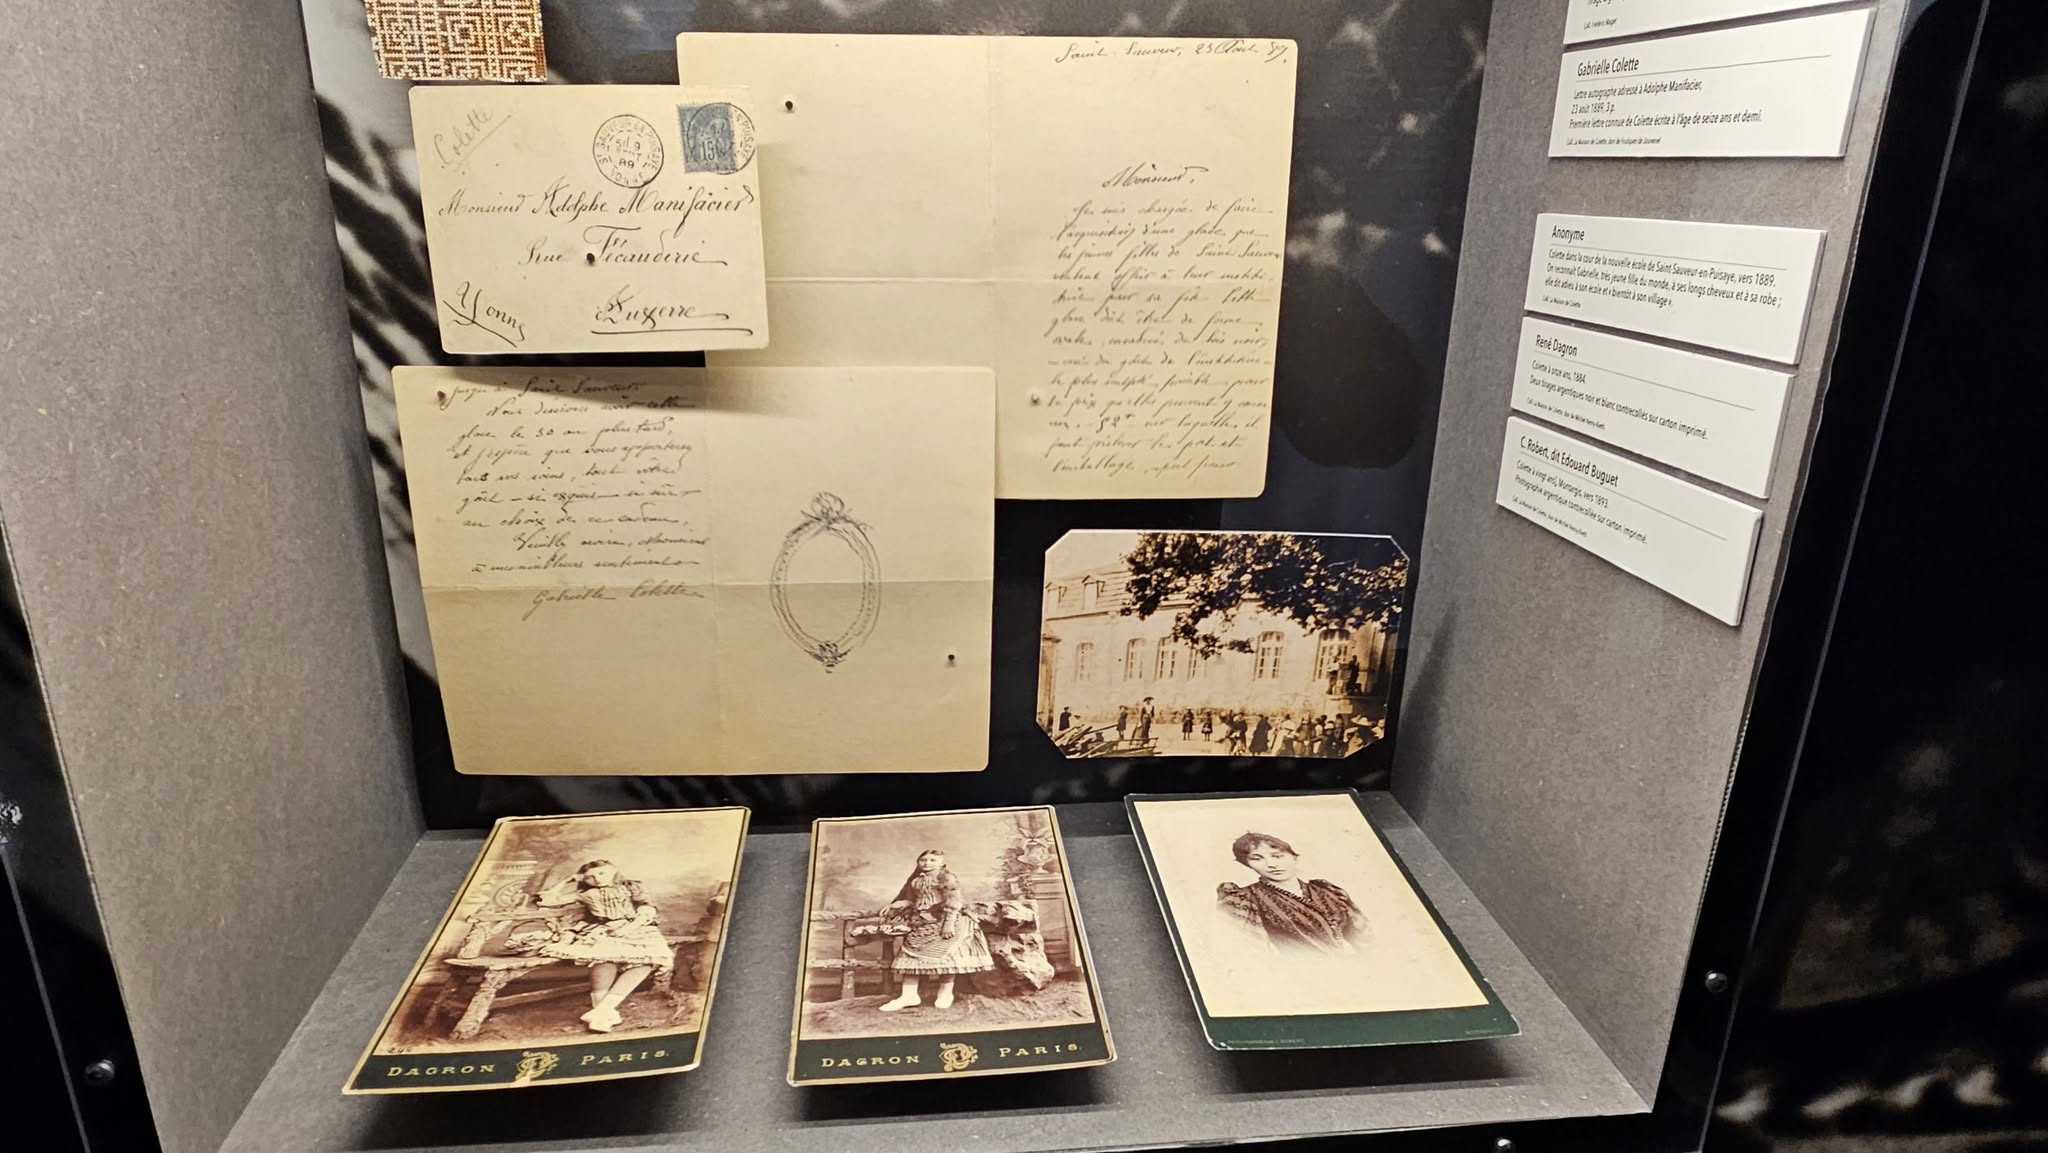 Colette
ST SAUVEUR-EN-PUISAYE
89
YONNE
15
Monsieur Adolphe Manifacier
Rue Fécauderie
Auxerre
Yonne
Saint-Sauveur, 23 Août 89.
Monsieur,
Je suis chargée de faire
l'acquisition d'une glace que
les jeunes filles de Saint Sauveur
veulent offrir à leur institu-
trice pour sa fête. Cette
glace doit être de forme
ovale, du bois noir,
du goût de l'institutrice
le plus sculpté possible pour
le prix qu'elles peuvent y
sur laquelle il
faut prélever le port et
l'emballage
jusqu'à Saint Sauveur.
Nous désirons avoir cette
glace le 30 au plus tard,
et j'espère que vous apporterez
tous vos soins, tout votre
goût – si exquis – si sûr –
au choix de ce cadeau.
Veuillez Monsieur
à mes meilleurs sentiments
Gabrielle Colette
DAGRON PARIS.
DAGRON PARIS.
Gabrielle Colette
Lettre autographe adressée à Adolphe Manifacier,
23 août 1889, 3 p.
Première lettre connue de Colette écrite à l'âge de seize ans et demi.
Coll. La Maison de Colette, don de Foulques de Jouvenel
Anonyme
Colette dans la cour de la nouvelle école de Saint-Sauveur-en-Puisaye, vers 1889.
On reconnaît Gabrielle, très jeune fille du monde, à ses longs cheveux et à sa robe ;
elle dit adieu à son école et « bientôt à son village ».
Coll. La Maison de Colette
René Dagron
Colette à onze ans, 1884.
Deux tirages argentiques noir et blanc contrecollés sur carton imprimé.
Coll. La Maison de Colette, don de Michel Remy-Bieth
C. Robert, dit Edouard Buguet
Colette à vingt ans, Montargis, vers 1893.
Photographie argentique contrecollée sur carton imprimé.
Coll. La Maison de Colette, don de Michel Remy-Bieth